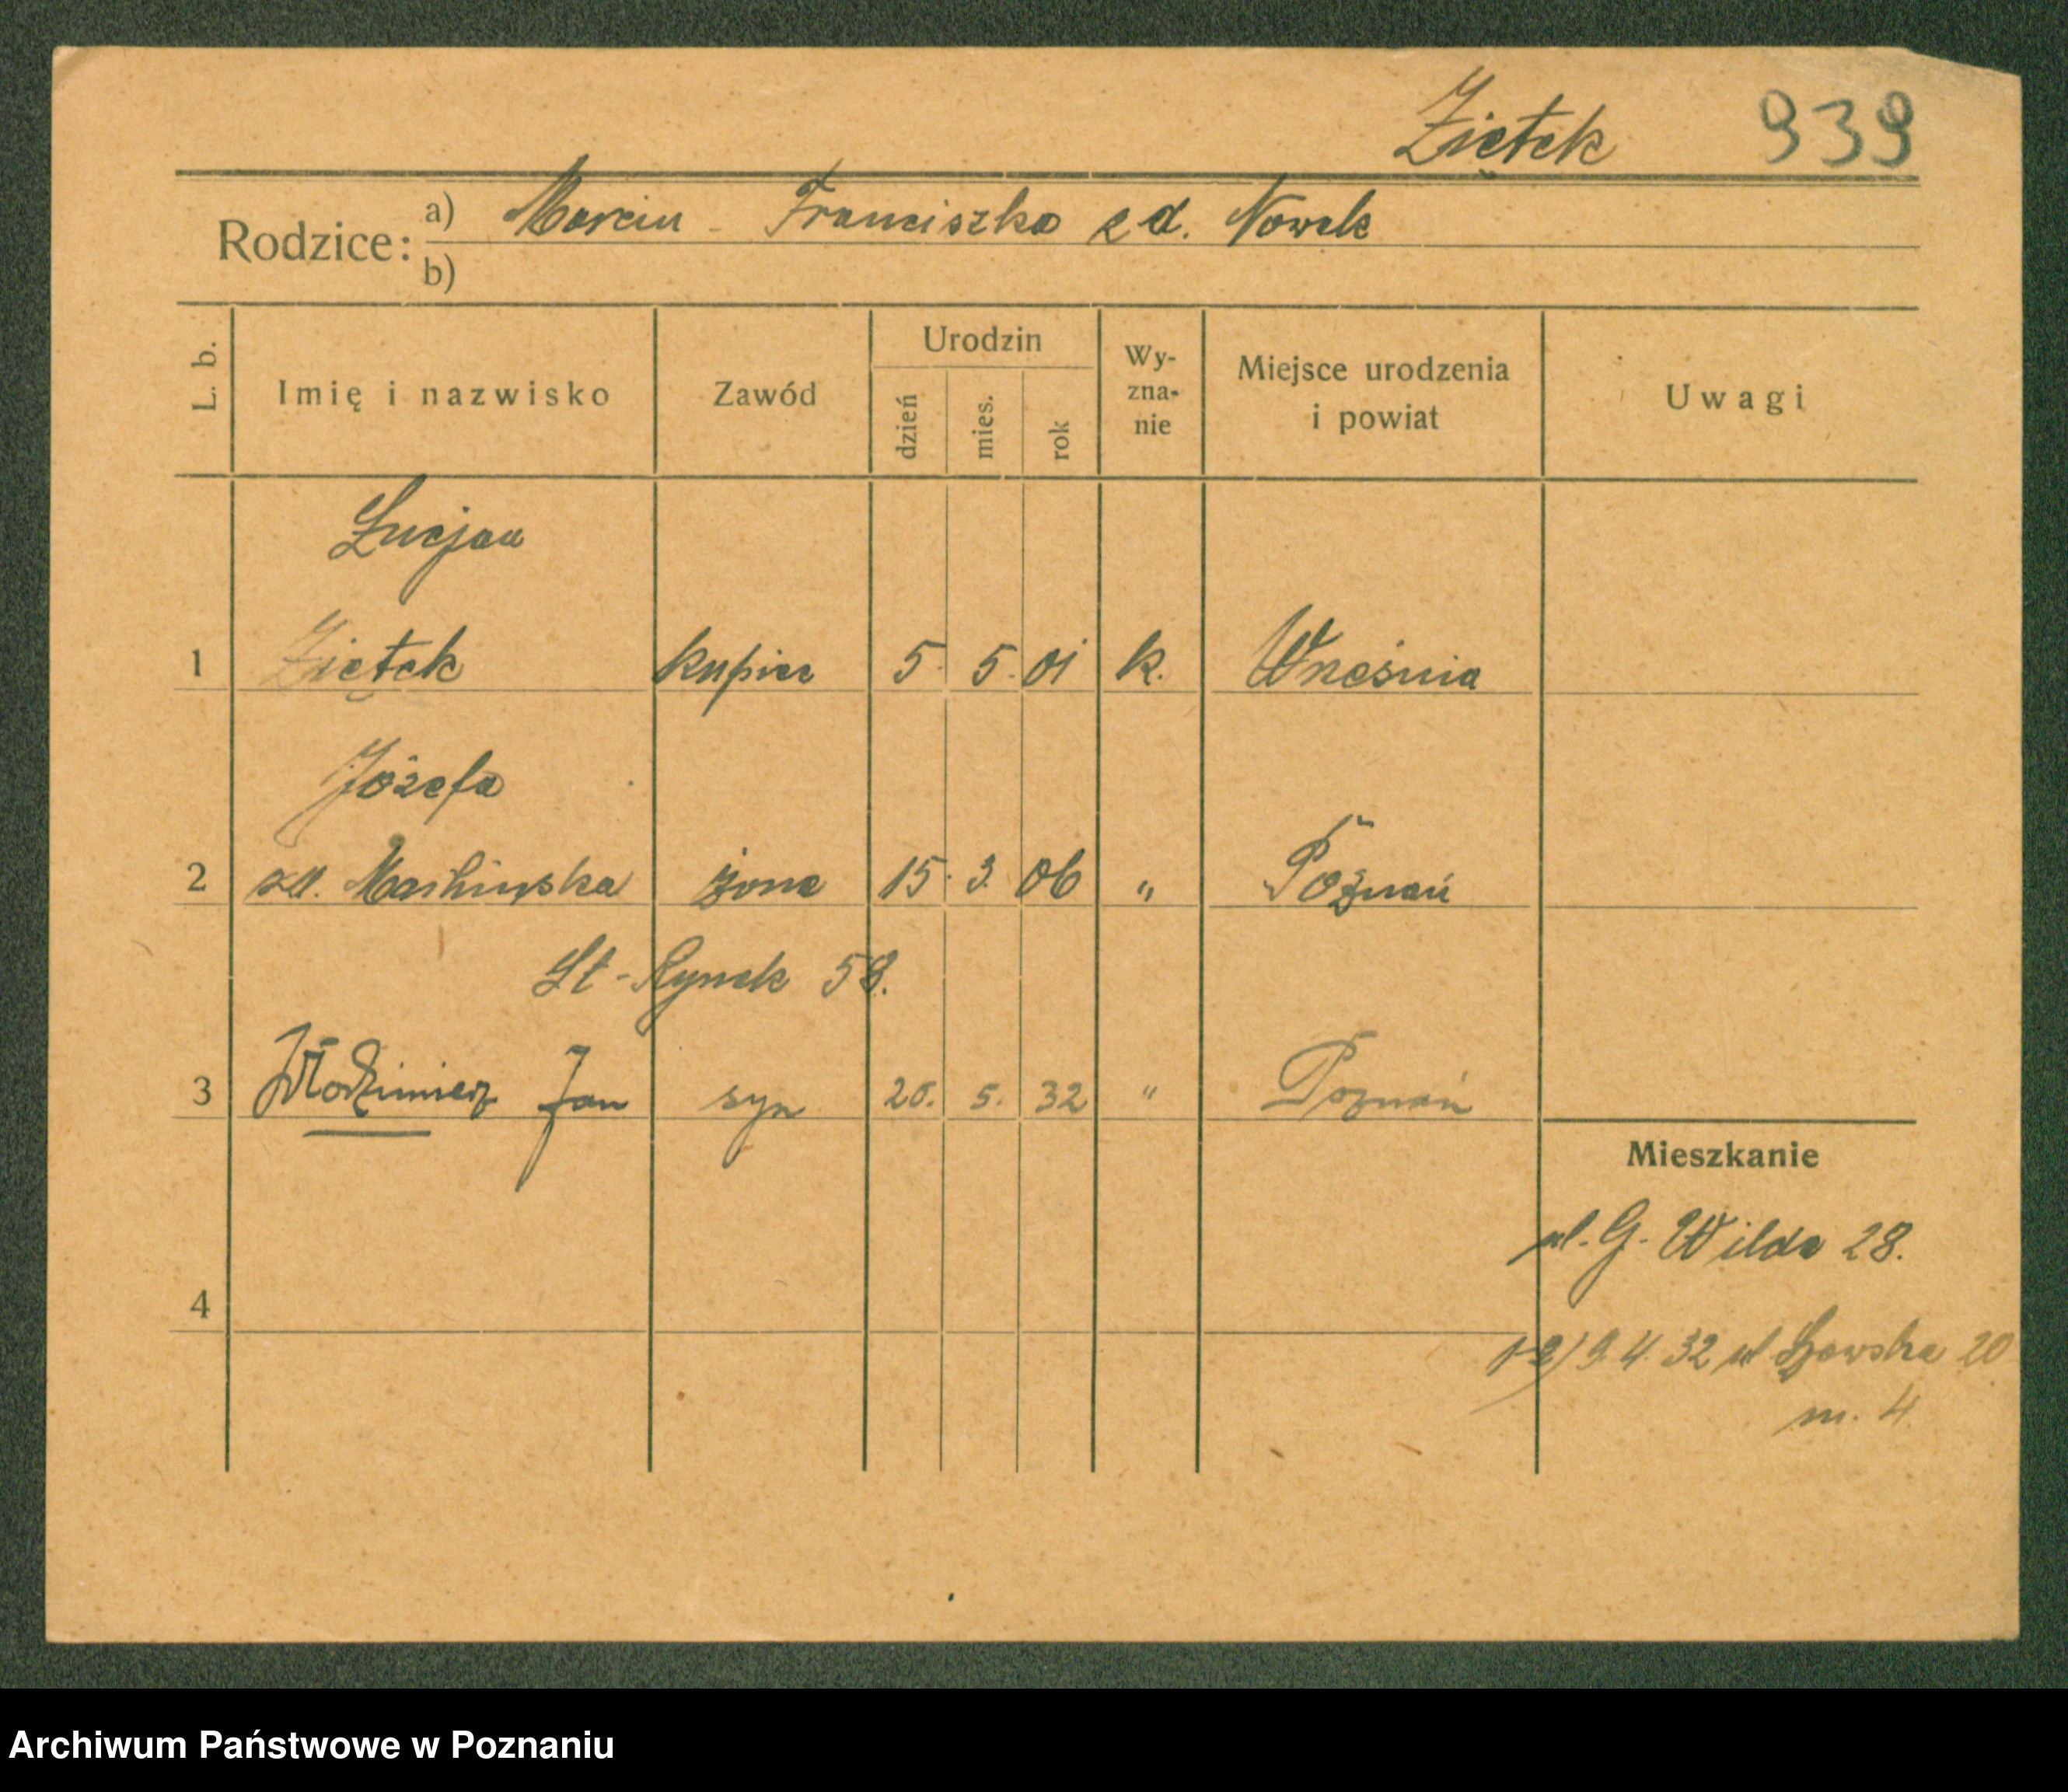 Ziętek 939
Rodzice: a) Marcin - Franciszka z d. Nowak
b)
L. b. Imię i nazwisko Zawód Urodzin dzień mies. rok Wy-zna-nie Miejsce urodzenia i powiat Uwagi
Lucjan
1 Ziętek kupiec 5. 5. 01 k. Września
Józefa
2 zd. żona 15. 3. 06 „ Poznań
St-Rynek 58.
3 Włodzimierz Jan syn 20. 5. 32 „ Poznań
Mieszkanie
ul. G. Wilda 28.
4
1-2) 9. 4. 32 ul 20
m. 4.
Archiwum Państwowe w Poznaniu